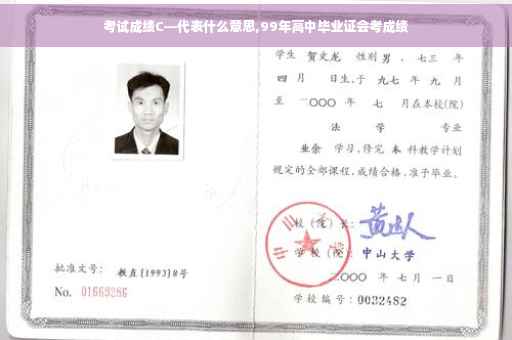 考试成绩C—代表什么意思,99年高中毕业证会考成绩
学生 贺文龙 性别 男 ,七三 年
四 月 日生,于 九七 年 九 月
至 二〇〇〇 年 七 月在本校(院)
法 学 专业
业余 学习,修完 本 科教学计划
规定的全部课程,成绩合格,准予毕业。
校(院)长:
学 校(院): 中山大学
二〇〇〇 年 七 月 一 日
学校编号: 0032482
批准文号: 教直[1993]8号
No. 01669286